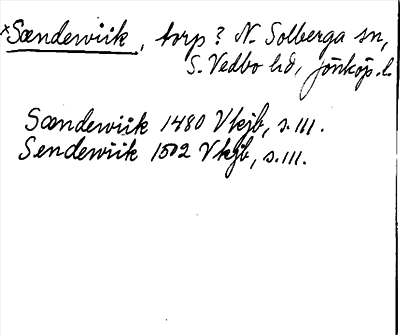 ×Sændewiik, torp? N. Solberga sn,
S. Vedbo hd, Jönköp. l.
Sændewiik 1480 Vkjb, s. 111.
Sendewiik 1502 Vkjb, s. 111.